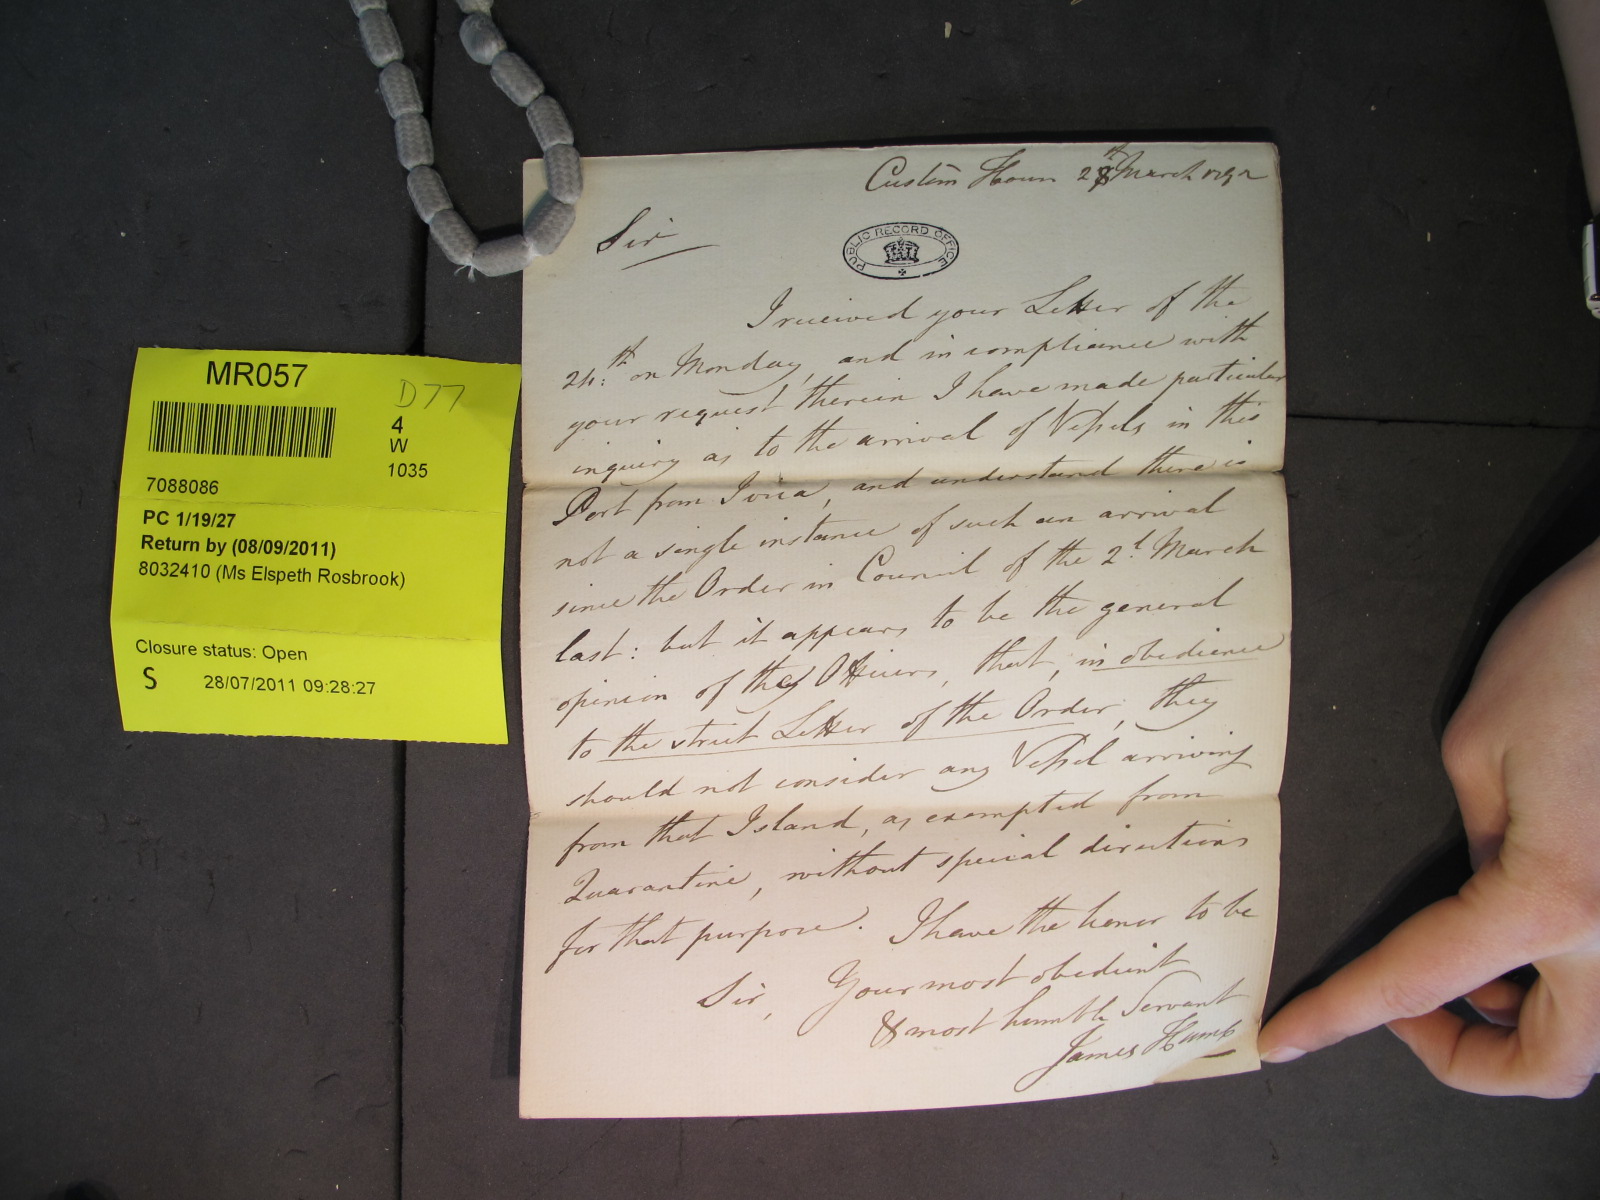 MR057
D77
4
W
1035
7088086
PC 1/19/27
Return by (08/09/2011)
8032410 (Ms Elspeth Rosbrook)
Closure status: Open
S 28/07/2011 09:28:27
Custom House 28th March 1792
Sir
PUBLIC RECORD OFFICE
I received your Letter of the
24th on Monday, and in compliance with
your request therein I have made particular
inquiry as to the arrival of Vessels in this
Port from Ivica, and understand there is
not a single instance of such an arrival
since the Order in Council of the 2d March
last: but it appears to be the general
opinion of the Officers, that, in obedience
to the strict Letter of the Order, they
should not consider any Vessel arriving
from that Island, as exempted from
Quarantine, without special directions
for that purpose. I have the honor to be
Sir, Your most obedient
& most humble Servant
James Hume